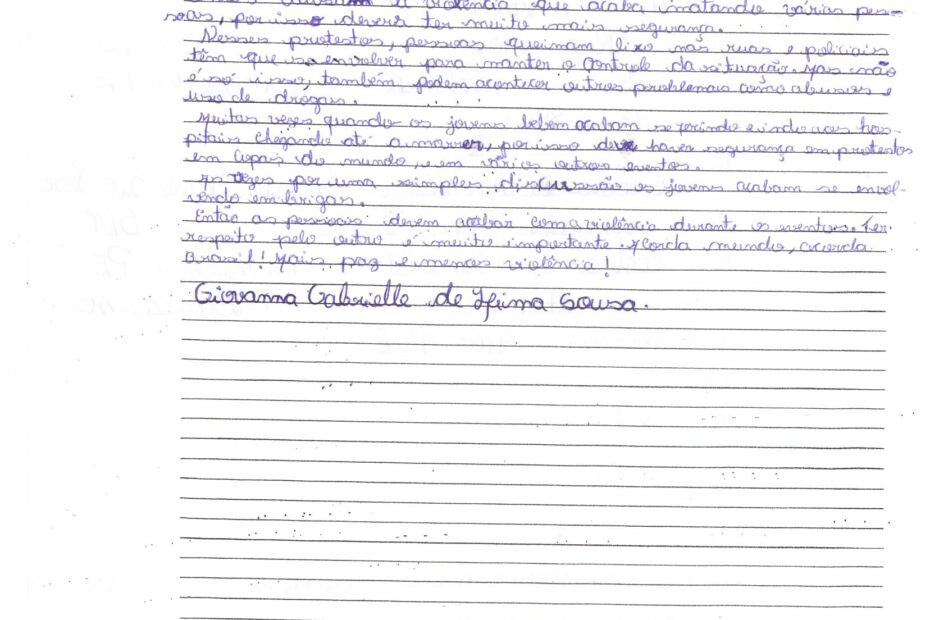 a violência que acaba matando várias pes-
soas, por isso deverá ter muito mais segurança.
Nesses protestos, pessoas queimam lixo nas ruas e policiais
têm que se envolver para manter o controle da situação. Mas não
é só isso, também podem acontecer outros problemas como abusos e
uso de drogas.
Muitas vezes quando os jovens bebem acabam se ferindo e indo aos hos-
pitais chegando até a morrer, por isso deve haver segurança em protestos
em Copas do mundo, e em vários outros eventos.
As vezes por uma simples discussão os jovens acabam se envol-
vendo em brigas.
Então as pessoas devem acabar com a violência durante os eventos. Ter
respeito pelo outro é muito importante. Acorda mundo, acorda
Brasil! Mais paz e menos violência!
Giovanna Gabrielle de Lima Sousa.